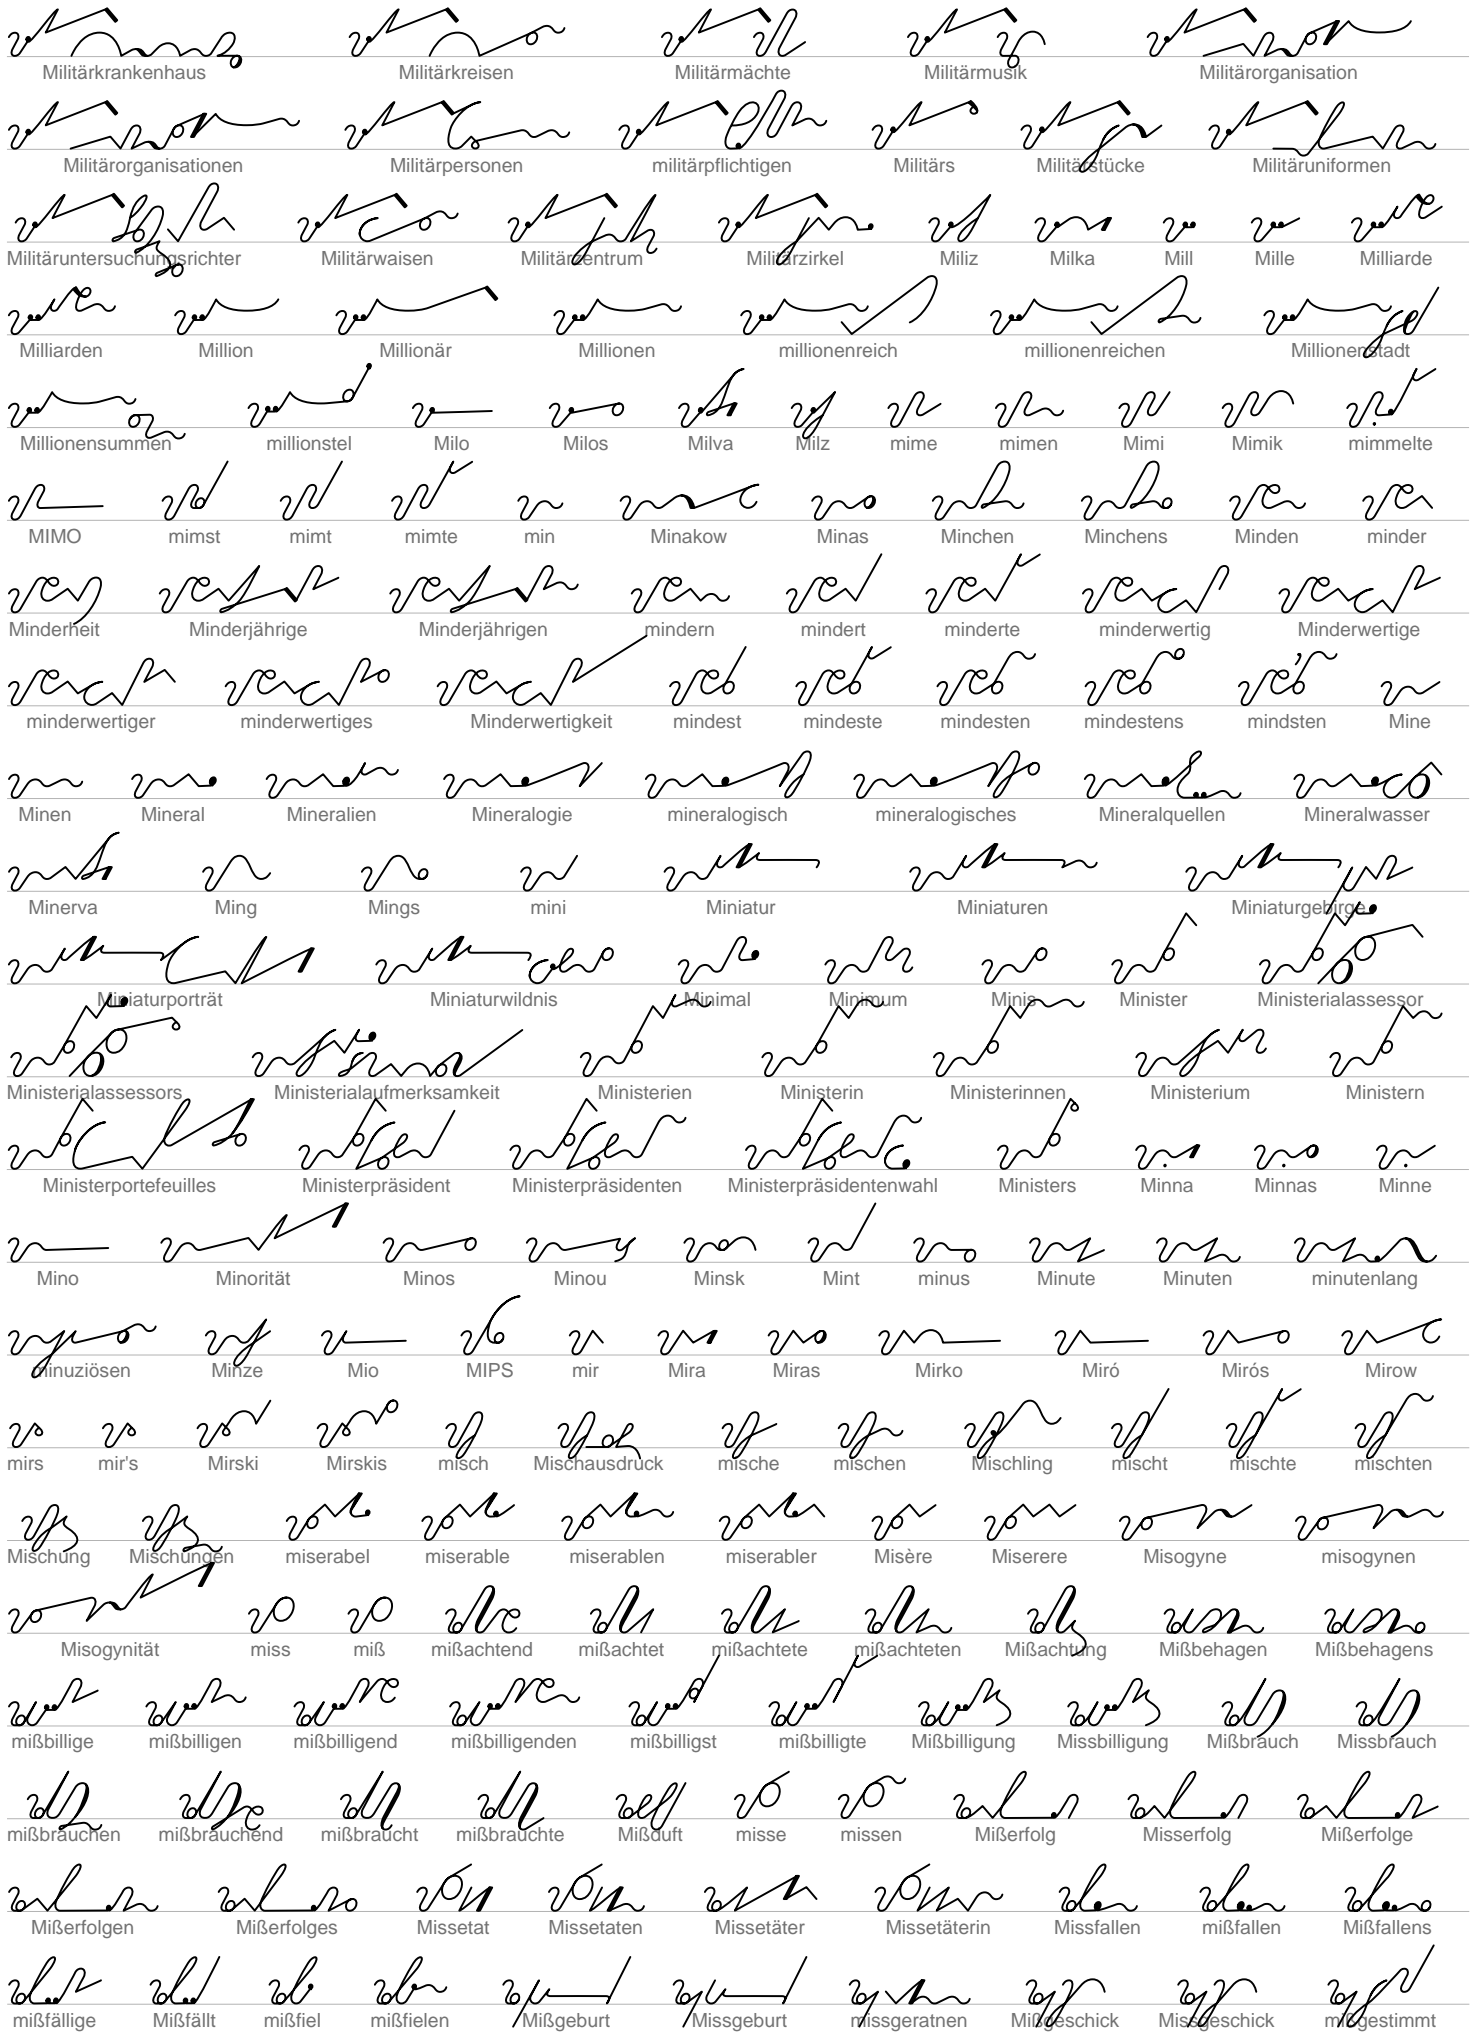 Militärkrankenhaus Militärkreisen Militärmächte Militärmusik Militärorganisation
Militärorganisationen Militärpersonen militärpflichtigen Militärs Militärstücke Militäruniformen
Militäruntersuchungsrichter Militärwaisen Militärzentrum Militärzirkel Miliz Milka Mill Mille Milliarde
Milliarden Million Millionär Millionen millionenreich millionenreichen Millionenstadt
Millionensummen millionstel Milo Milos Milva Milz mime mimen Mimi Mimik mimmelte
MIMO mimst mimt mimte min Minakow Minas Minchen Minchens Minden minder
Minderheit Minderjährige Minderjährigen mindern mindert minderte minderwertig Minderwertige
minderwertiger minderwertiges Minderwertigkeit mindest mindeste mindesten mindestens mindsten Mine
Minen Mineral Mineralien Mineralogie mineralogisch mineralogisches Mineralquellen Mineralwasser
Minerva Ming Mings mini Miniatur Miniaturen Miniaturgebirge
Miniaturporträt Miniaturwildnis Minimal Minimum Minis Minister Ministerialassessor
Ministerialassessors Ministerialaufmerksamkeit Ministerien Ministerin Ministerinnen Ministerium Ministern
Ministerportefeuilles Ministerpräsident Ministerpräsidenten Ministerpräsidentenwahl Ministers Minna Minnas Minne
Mino Minorität Minos Minou Minsk Mint minus Minute Minuten minutenlang
minuziösen Minze Mio MIPS mir Mira Miras Mirko Miró Mirós Mirow
mirs mir's Mirski Mirskis misch Mischausdruck mische mischen Mischling mischt mischte mischten
Mischung Mischungen miserabel miserable miserablen miserabler Misère Miserere Misogyne misogynen
Misogynität miss miß mißachtend mißachtet mißachtete mißachteten Mißachtung Mißbehagen Mißbehagens
mißbillige mißbilligen mißbilligend mißbilligenden mißbilligst mißbilligte Mißbilligung Missbilligung Mißbrauch Missbrauch
mißbrauchen mißbrauchend mißbraucht mißbrauchte Mißduft misse missen Mißerfolg Misserfolg Mißerfolge
Mißerfolgen Mißerfolges Missetat Missetaten Missetäter Missetäterin Missfallen mißfallen Mißfallens
mißfällige Mißfällt mißfiel mißfielen Mißgeburt Missgeburt missgeratnen Mißgeschick Missgeschick mißgestimmt